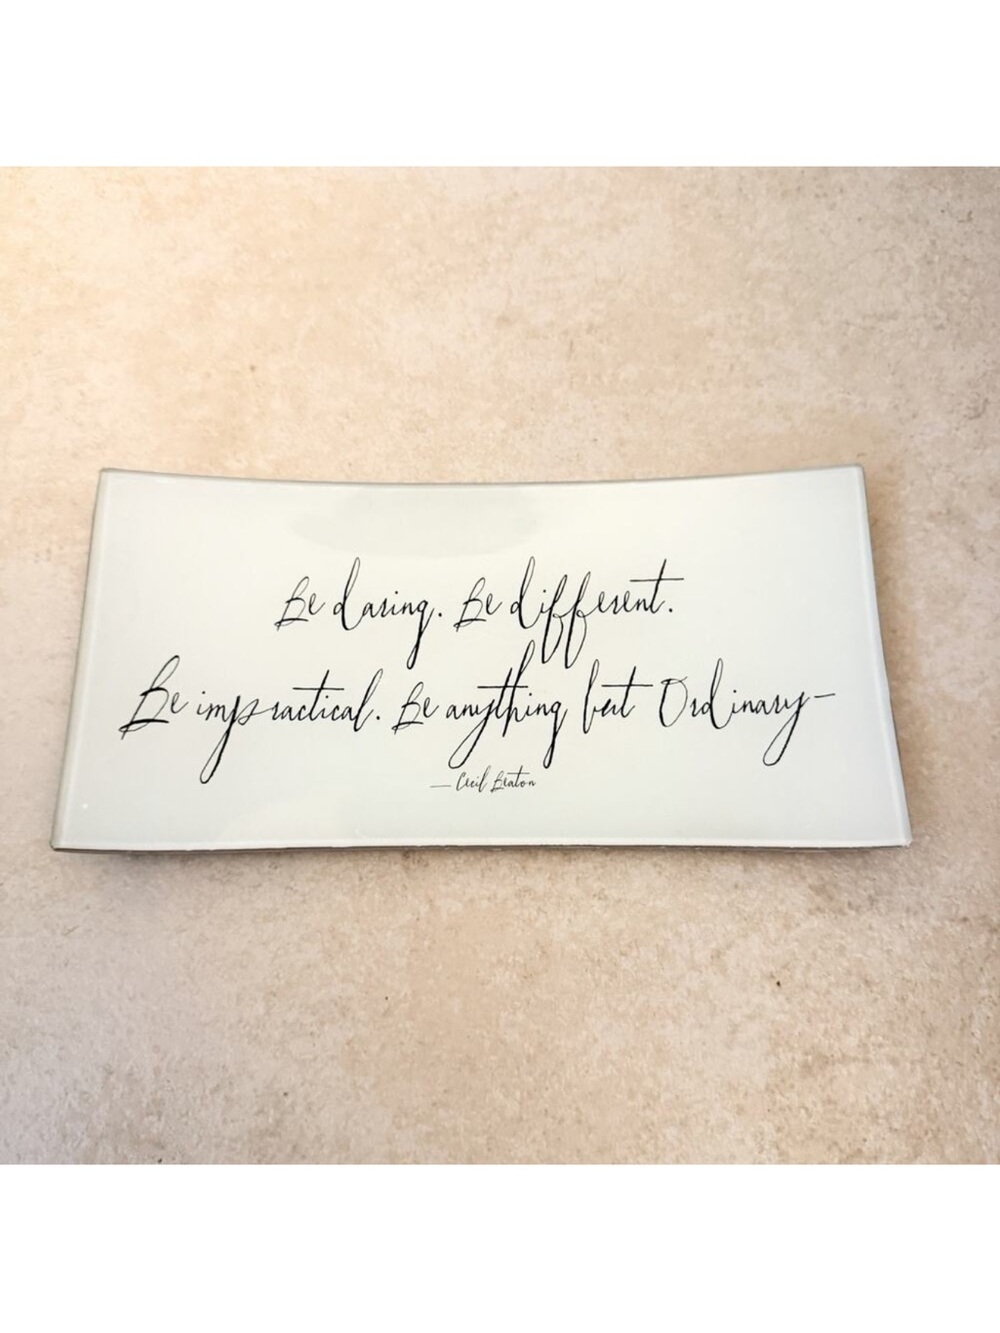 Be daring. Be different.
Be impractical. Be anything but Ordinary—
— Cecil Beaton